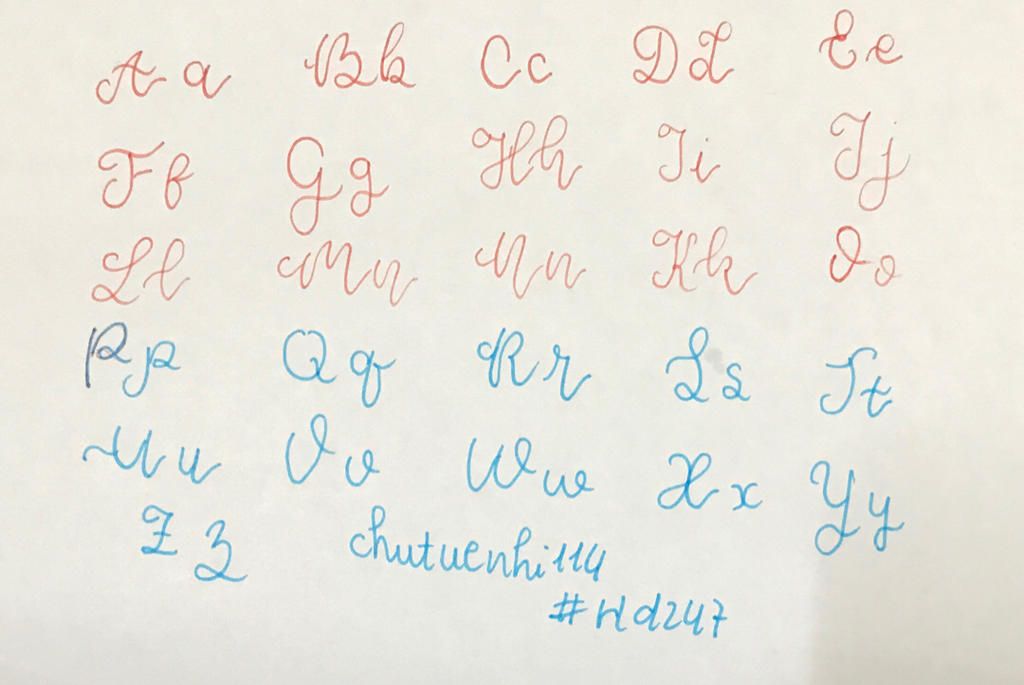 A a Bb Cc Dd Ee
Ff Gg Hh Ii Jj
Ll Mn Nn Kk Oo
Pp Qq Rr Ss Tt
Uu Vv Ww Xx Yy
Zz chutuenhi114
#Hd247